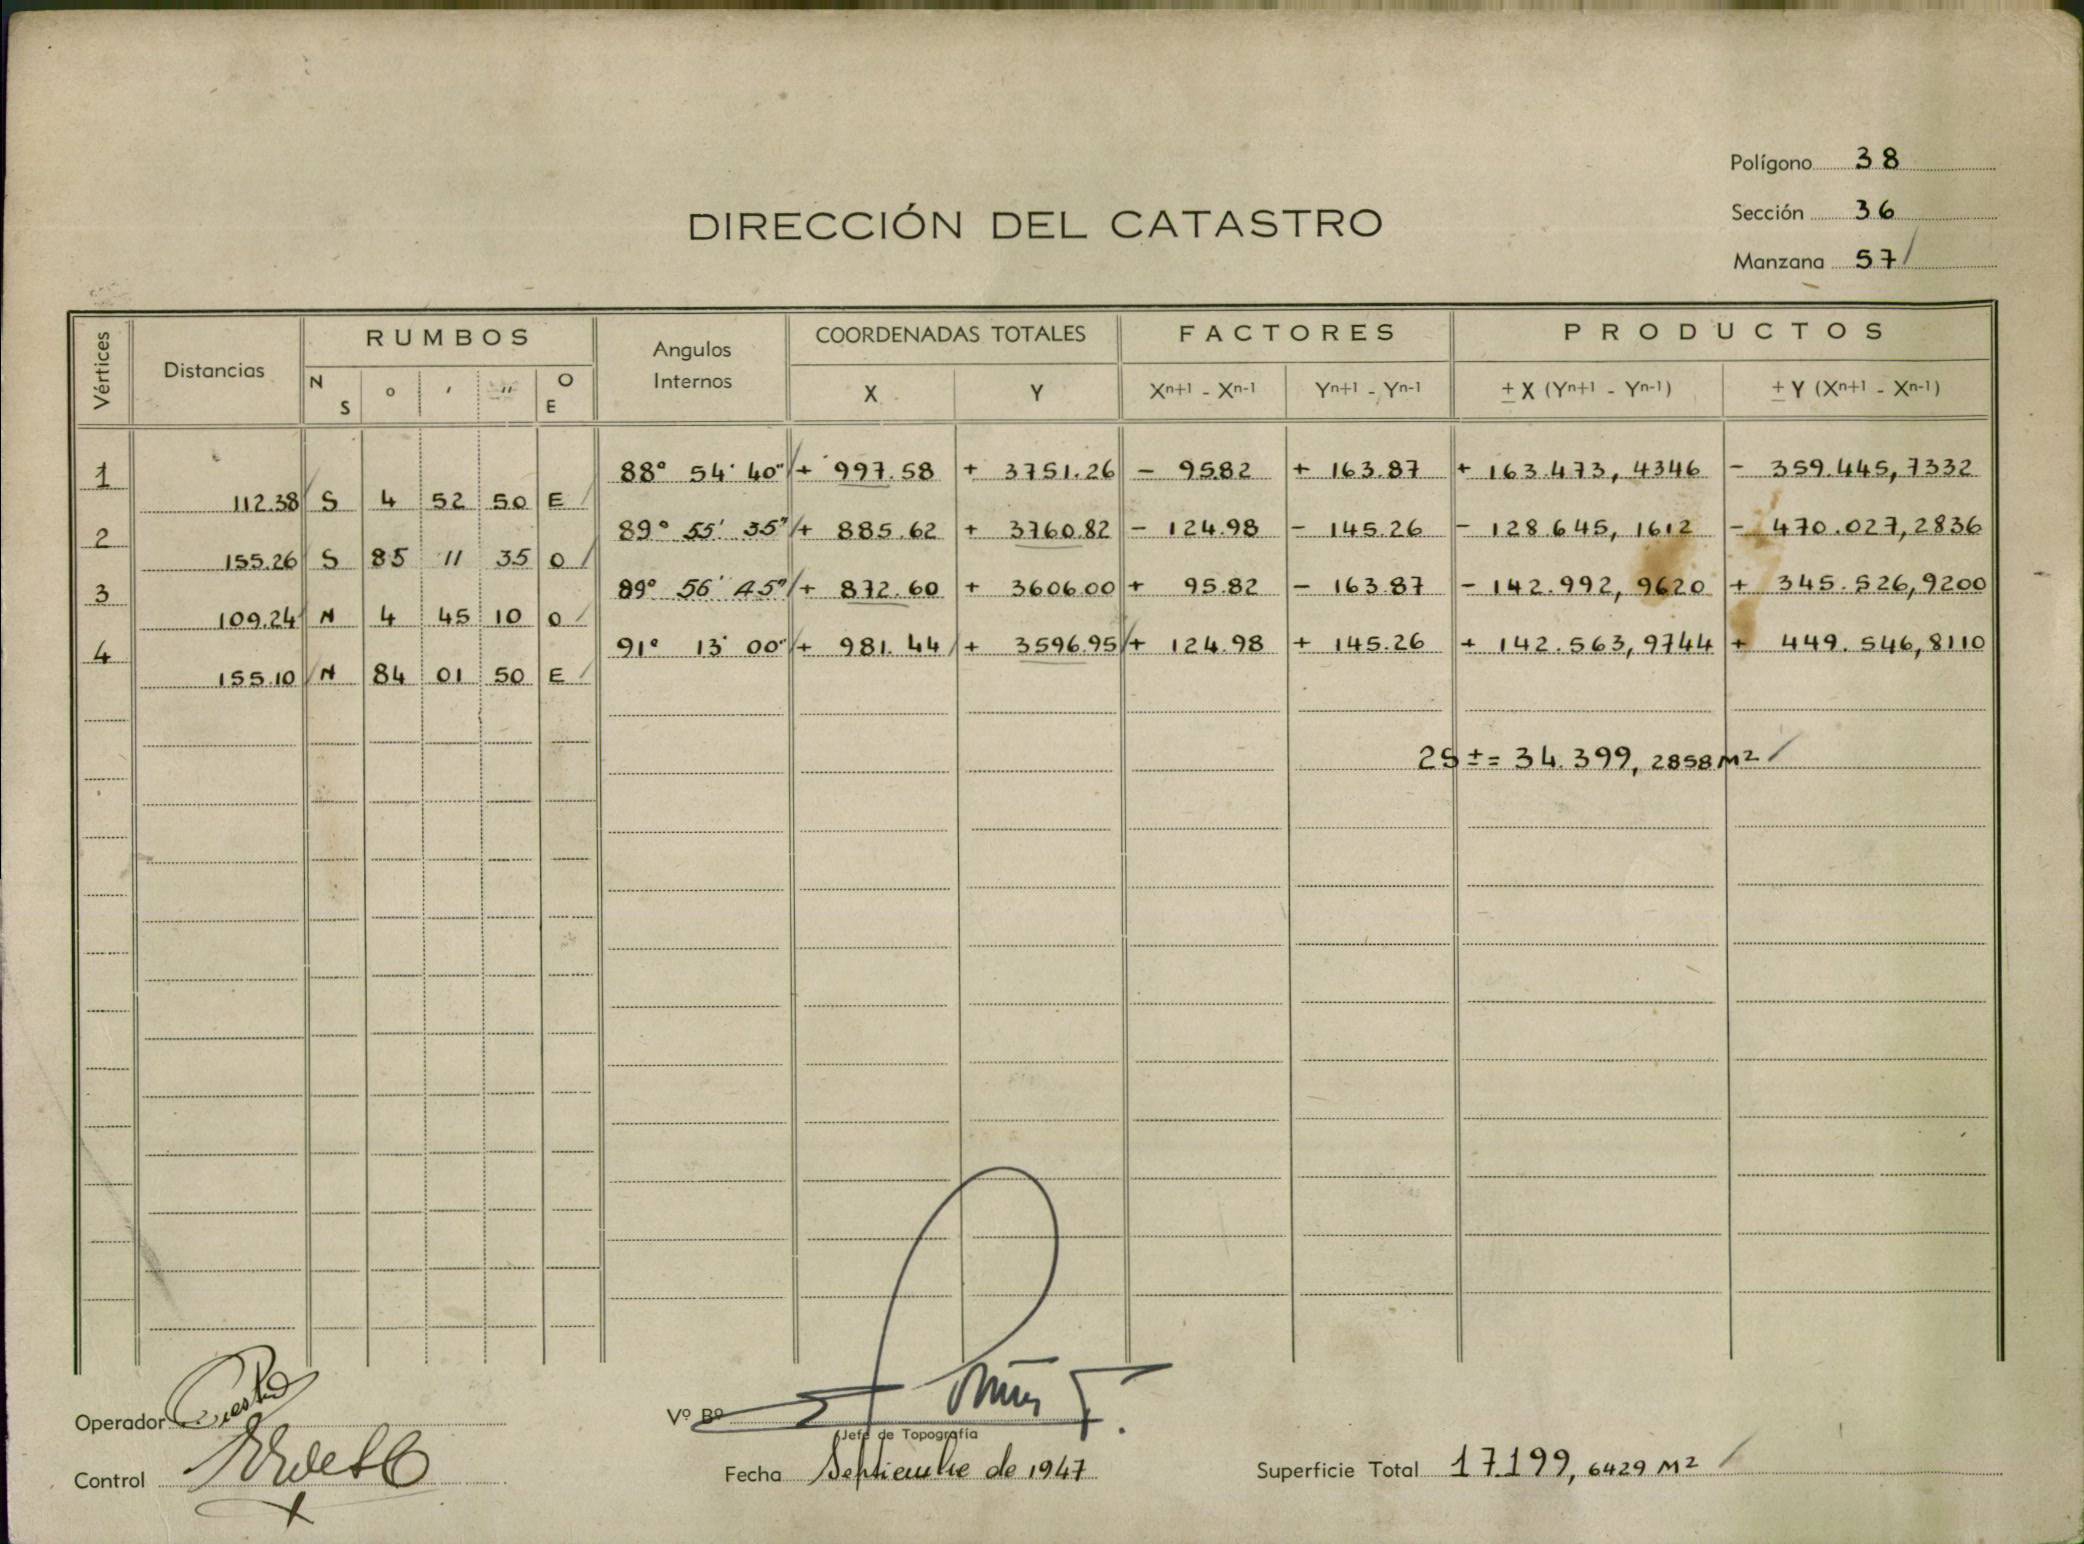 Polígono 38
Sección 36
Manzana 57
DIRECCIÓN DEL CATASTRO
Vértices Distancias RUMBOS Angulos Internos COORDENADAS TOTALES FACTORES PRODUCTOS
N S ° ′ ″ O E X Y Xn+1 - Xn-1 Yn+1 - Yn-1 ± X (Yn+1 - Yn-1) ± Y (Xn+1 - Xn-1)
1 88° 54' 40" + 997.58 + 3751.26 - 95.82 + 163.87 + 163.473, 4346 - 359.445, 7332
112.38 S 4 52 50 E
2 89° 55' 35" + 885.62 + 3760.82 - 124.98 - 145.26 - 128.645, 1612 - 470.027, 2836
155.26 S 85 11 35 O
3 89° 56' 45" + 872.60 + 3606.00 + 95.82 - 163.87 - 142.992, 9620 + 345.526, 9200
109.24 N 4 45 10 O
4 91° 13' 00" + 981.44 + 3596.95 + 124.98 + 145.26 + 142.563, 9744 + 449.546, 8110
155.10 N 84 01 50 E
2S ± = 34.399, 2858 M²
Operador
Vº Bº
Jefe de Topografía
Control
Fecha Septiembre de 1947
Superficie Total 17.199, 6429 M²